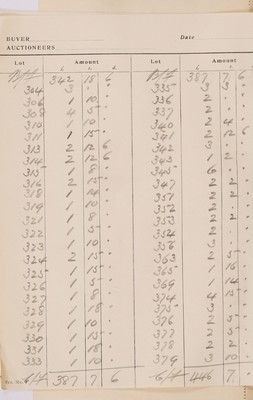 BUYER
Date
AUCTIONEERS
Lot Amount
£ s. d.
B/f 342 18 6
304 3 " "
306 1 10 "
308 4 5 "
310 1 10 "
311 1 15 "
313 2 12 6
314 2 12 6
315 1 8 "
316 2 15 "
318 1 14 "
319 1 10 "
321 1 8 "
322 1 5 "
323 1 10 "
324 2 15 "
325 1 15 "
326 1 5 "
327 1 8 "
328 1 18 "
329 1 10 "
330 1 15 "
331 1 18 "
333 1 10 "
C/f 387 7 6
Lot Amount
£ s. d.
B/f 387 7 6
335 3 3 "
336 2 " "
337 2 " "
340 2 4 "
341 2 12 6
342 3 " "
343 1 2 "
345 6 " "
347 2 2 "
351 2 2 "
352 2 2 "
353 2 2 "
354 2 " "
356 3 " "
363 2 5 "
365 1 16 "
369 1 14 "
374 4 15 "
375 3 " "
376 2 5 "
377 2 5 "
378 2 2 "
379 3 10 "
C/f 446 7 "